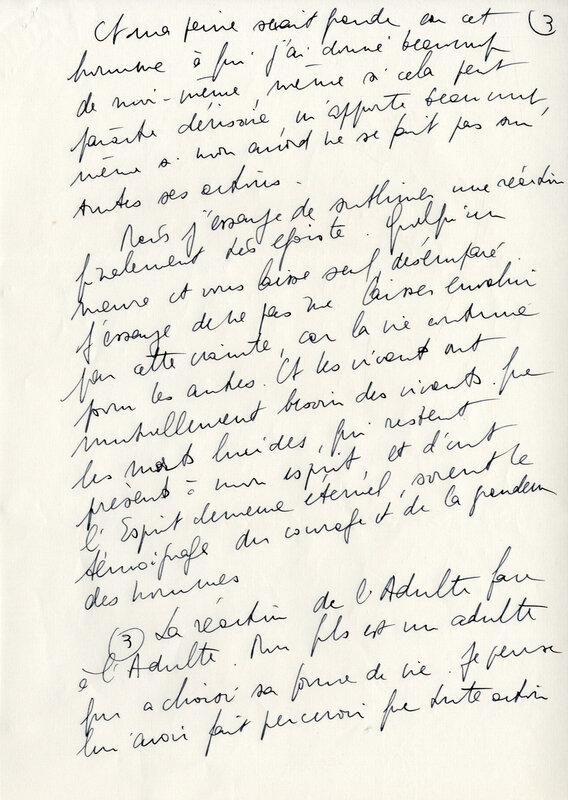 3
Et ma peine serait grande car cet
homme à qui j'ai donné beaucoup
de moi-même même si cela peut
paraître dérisoire m'apporte beaucoup,
même si mon accord ne se fait pas sur
toutes ses actions.
Mais j'essaye de sublimer une réaction
finalement très égoïste. Quelqu'un
meurt et vous laisse seul désemparé.
J'essaye de ne pas me laisser envahir
par cette crainte, car la vie continue
pour les autres. Et les vivants ont
mutuellement besoin des vivants. Que
les morts lucides, qui restent
présents à mon esprit et dont
l'Esprit demeure éternel, soient le
témoignage du courage et de la grandeur
des hommes
3 La réaction de l'Adulte face
à l'Adulte. Mon fils est un adulte
qui a choisi sa forme de vie. Je pense
lui avoir fait percevoir que toute action